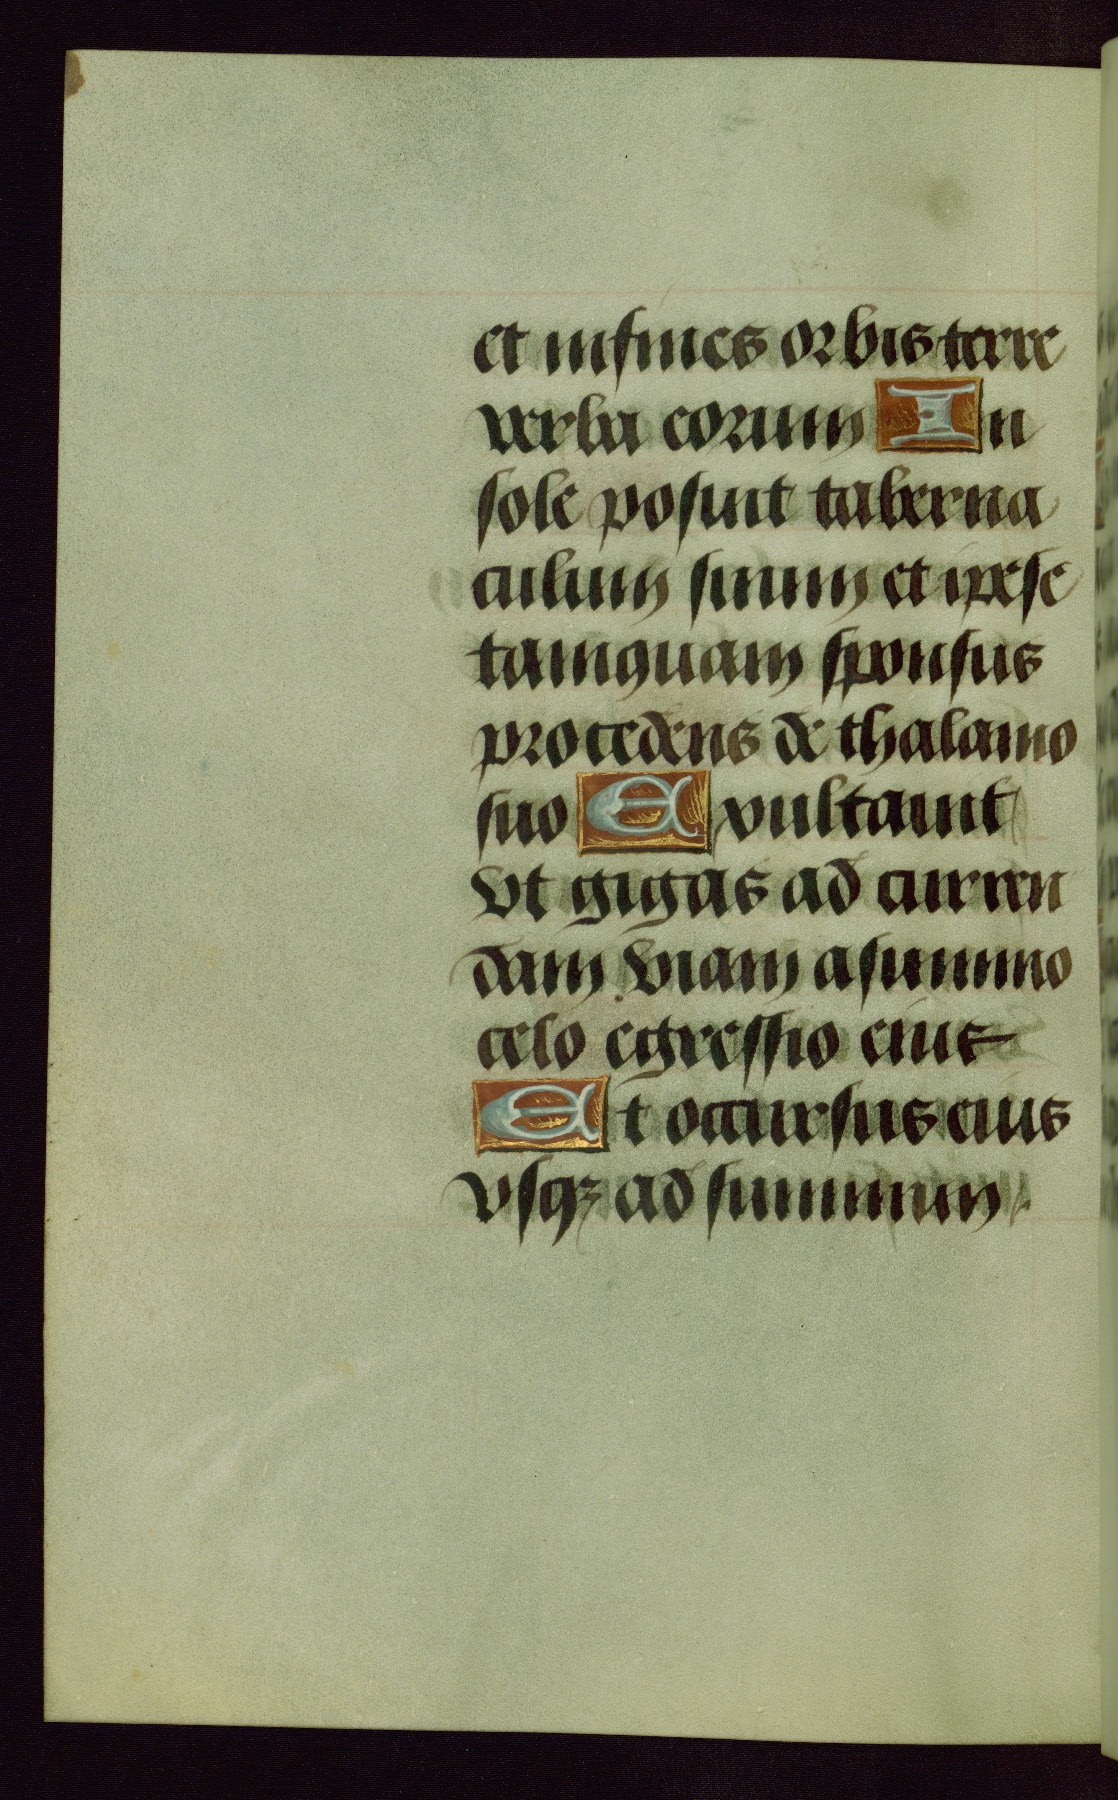 et infines orbis terre
verba eorum In
sole posuit taberna
culum suum et ipse
tamquam sponsus
procedens de thalamo
suo Exultauit
vt gigas ad curren
dam viam asummo
celo egressio eius
Et occursus eius
vsqꝫ ad summum